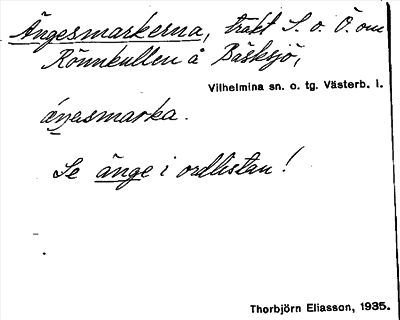 Ängesmarkerna, trakt S. o. Ö. om
Rönnkullen å Bäsksjö,
Vilhelmina sn. o. tg. Västerb. l.
áŋasmarka.
Se änge i ordlistan!
Thorbjörn Eliasson, 1935.